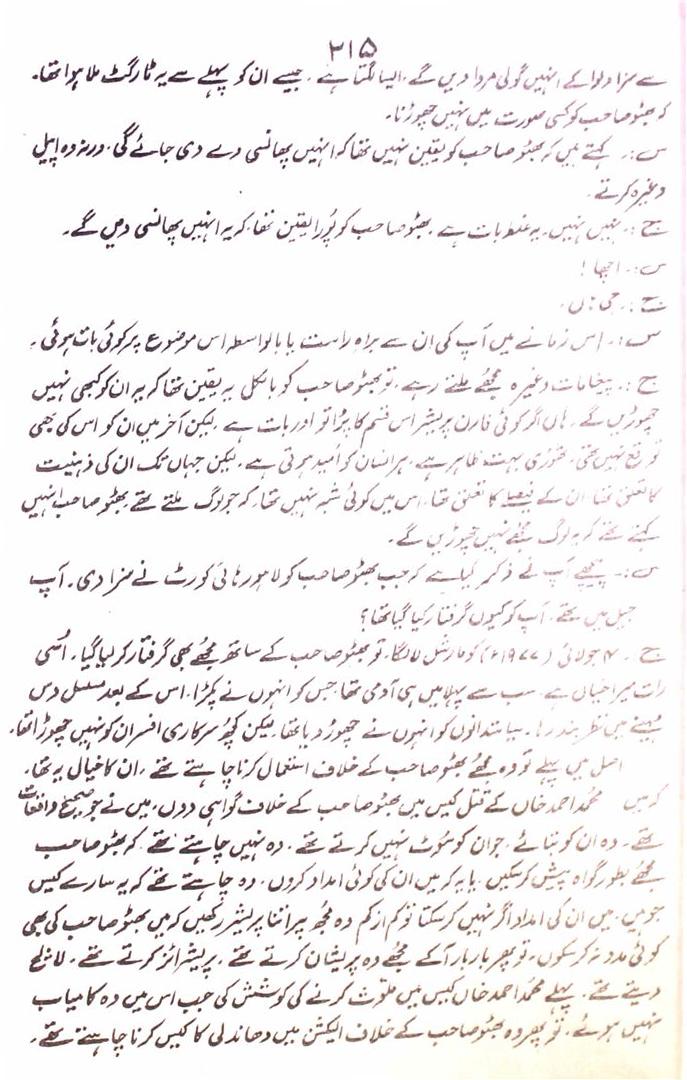 ۲۱۵
سے سزا دلوا کے انہیں گولی مروا دیں گے، ایسا لگتا ہے۔ جیسے ان کو پہلے سے یہ ٹارگٹ ملا ہوا تھا۔
کہ بھٹو صاحب کو کسی صورت میں نہیں چھوڑنا۔
س:۔ کہتے ہیں کہ بھٹو صاحب کو یقین نہیں تھا کہ انہیں پھانسی دے دی جائے گی۔ ورنہ وہ اپیل
وغیرہ کرتے۔
ج:۔ نہیں نہیں۔ یہ غلط بات ہے۔ بھٹو صاحب کو پُورا یقین تھا۔ کہ یہ انہیں پھانسی دیں گے۔
س:۔ اچھا!
ج:۔ جی ہاں۔
س:۔ اس زمانے میں آپ کی ان سے براہِ راست یا بالواسطہ اس موضوع پر کوئی بات ہوئی۔
ج:۔ پیغامات وغیرہ مجھے ملتے رہے۔ تو بھٹو صاحب کو بالکل یہ یقین تھا کہ یہ ان کو کبھی نہیں
چھوڑیں گے۔ ہاں اگر کوئی فارن پریشر اس قسم کا پڑا تو اور بات ہے۔ لیکن آخر میں ان کو اس کی بھی
توقع نہیں تھی۔ تھوڑی بہت ظاہر ہے۔ ہر انسان کو اُمید ہوتی ہے۔ لیکن جہاں تک ان کی ذہنیت
کا تعلق تھا۔ ان کے فیصلے کا تعلق تھا۔ اس میں کوئی شبہ نہیں تھا۔ کہ جو لوگ ملتے تھے بھٹو صاحب انہیں
کہتے تھے کہ یہ لوگ مجھے نہیں چھوڑیں گے۔
س:۔ پیچھے آپ نے ذکر کیا ہے کہ جب بھٹو صاحب کو لاہور ہائی کورٹ نے سزا دی۔ آپ
جیل میں تھے۔ آپ کو کیوں گرفتار کیا گیا تھا؟
ج۔ ۴ جولائی (۱۹۷۷ء) کو مارشل لا لگا۔ تو بھٹو صاحب کے ساتھ مجھے بھی گرفتار کر لیا گیا۔ اُسی
رات میرا خیال ہے۔ سب سے پہلا میں ہی آدمی تھا جس کو انہوں نے پکڑا۔ اس کے بعد مسلسل دس
مہینے میں نظر بند رہا۔ سیاستدانوں کو انہوں نے چھوڑ دیا تھا۔ لیکن کچھ سرکاری افسران کو نہیں چھوڑا تھا۔
اصل میں پہلے تو وہ مجھے بھٹو صاحب کے خلاف استعمال کرنا چاہتے تھے۔ ان کا خیال یہ تھا۔
کہ میں محمد احمد خاں کے قتل کیس میں بھٹو صاحب کے خلاف گواہی دوں۔ میں نے جو صحیح واقعات
تھے۔ وہ ان کو بتائے۔ جو ان کو سُوٹ نہیں کرتے تھے۔ وہ نہیں چاہتے تھے۔ کہ بھٹو صاحب
مجھے بطور گواہ پیش کر سکیں۔ یا یہ کہ میں ان کی کوئی امداد کروں۔ وہ چاہتے تھے کہ یہ سارے کیس
جو ہیں۔ میں ان کی امداد اگر نہیں کر سکتا تو کم از کم وہ مجھ پر اتنا پریشر رکھیں کہ میں بھٹو صاحب کی بھی
کوئی مدد نہ کر سکوں۔ تو پھر بار بار آ کے مجھے وہ پریشان کرتے تھے۔ پریشرائز کرتے تھے۔ لالچ
دیتے تھے۔ پہلے محمد احمد خاں کیس میں ملوث کرنے کی کوشش کی جب اس میں وہ کامیاب
نہیں ہوئے۔ تو پھر وہ بھٹو صاحب کے خلاف الیکشن میں دھاندلی کا کیس کرنا چاہتے تھے۔